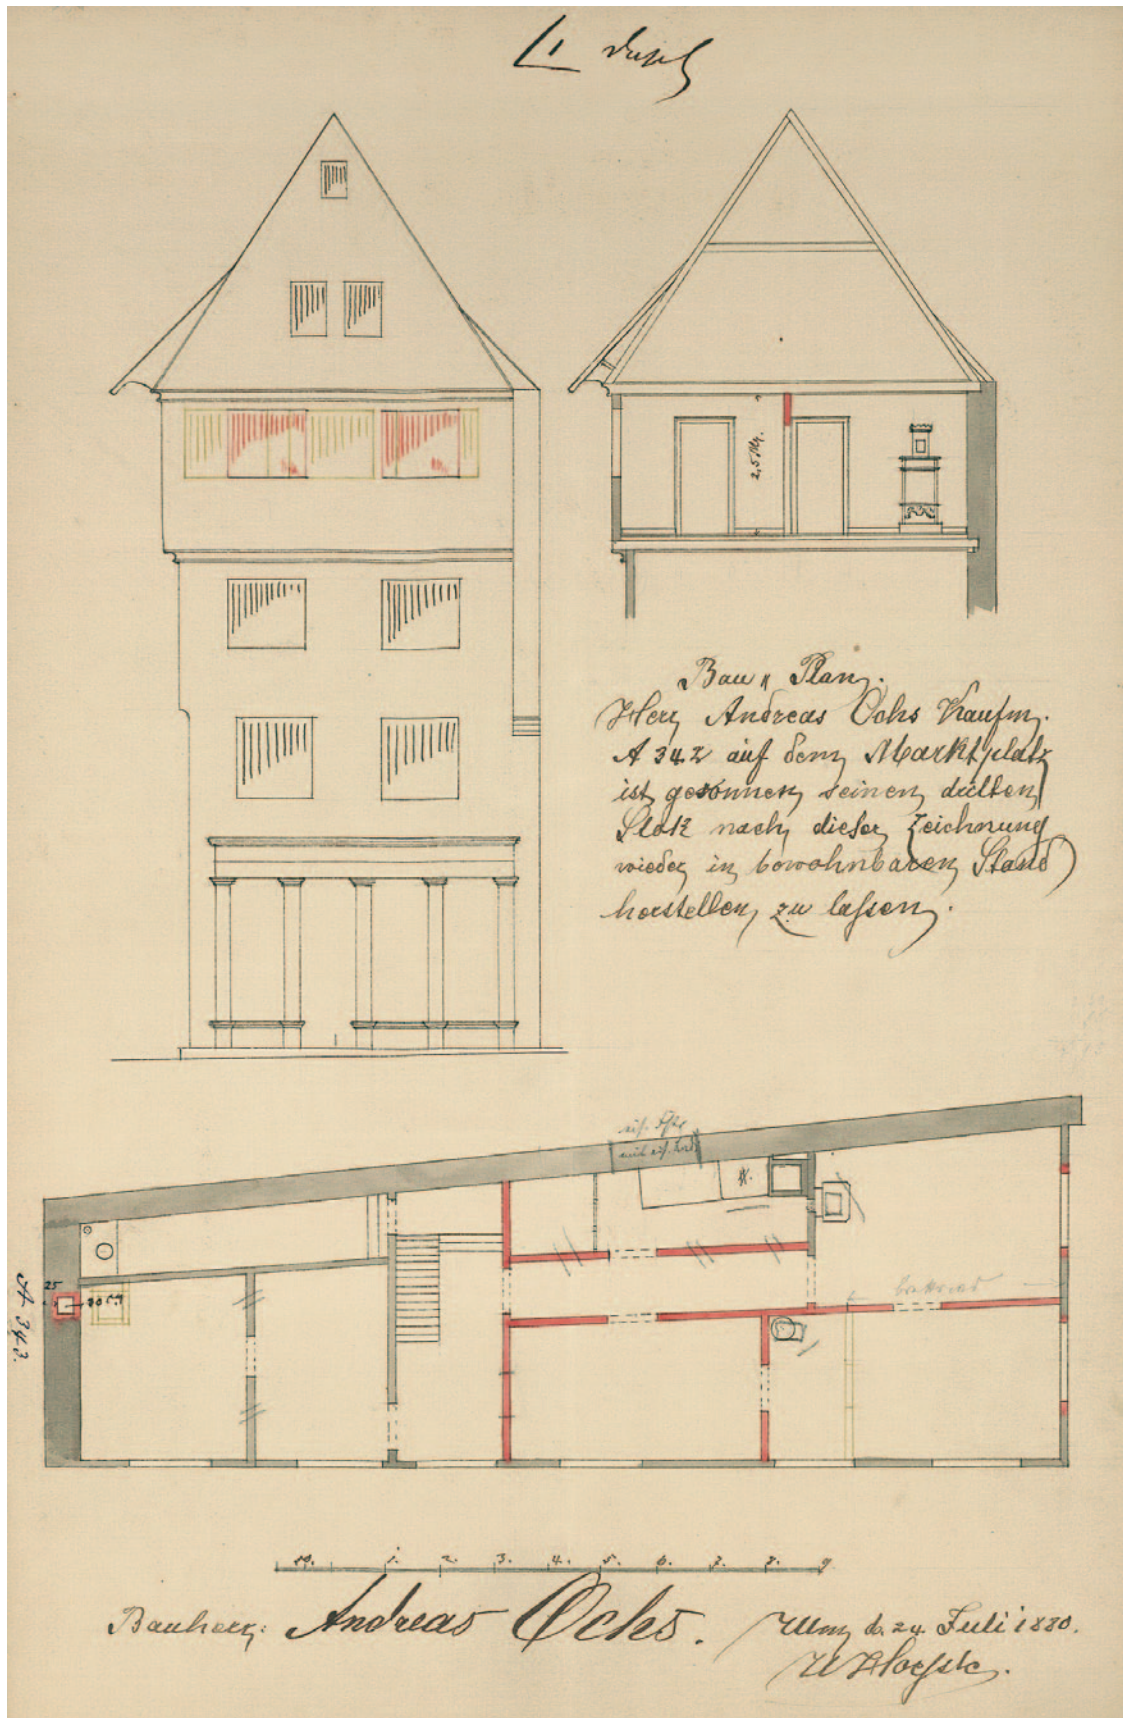 Bau Plan.
Herr Andreas Ochs Kaufm.
A 342 auf dem Marktplatz
ist gesonnen seinen dritten
Stok nach dieser Zeichnung
wieder in bewohnbaren Stand
herstellen zu lassen.
2,5 M.
25
A 343.
10. 1. 2. 3. 4. 5. 6. 7. 8. 9
Bauherr: Andreas Ochs.
Ulm d. 24 Juli 1880.